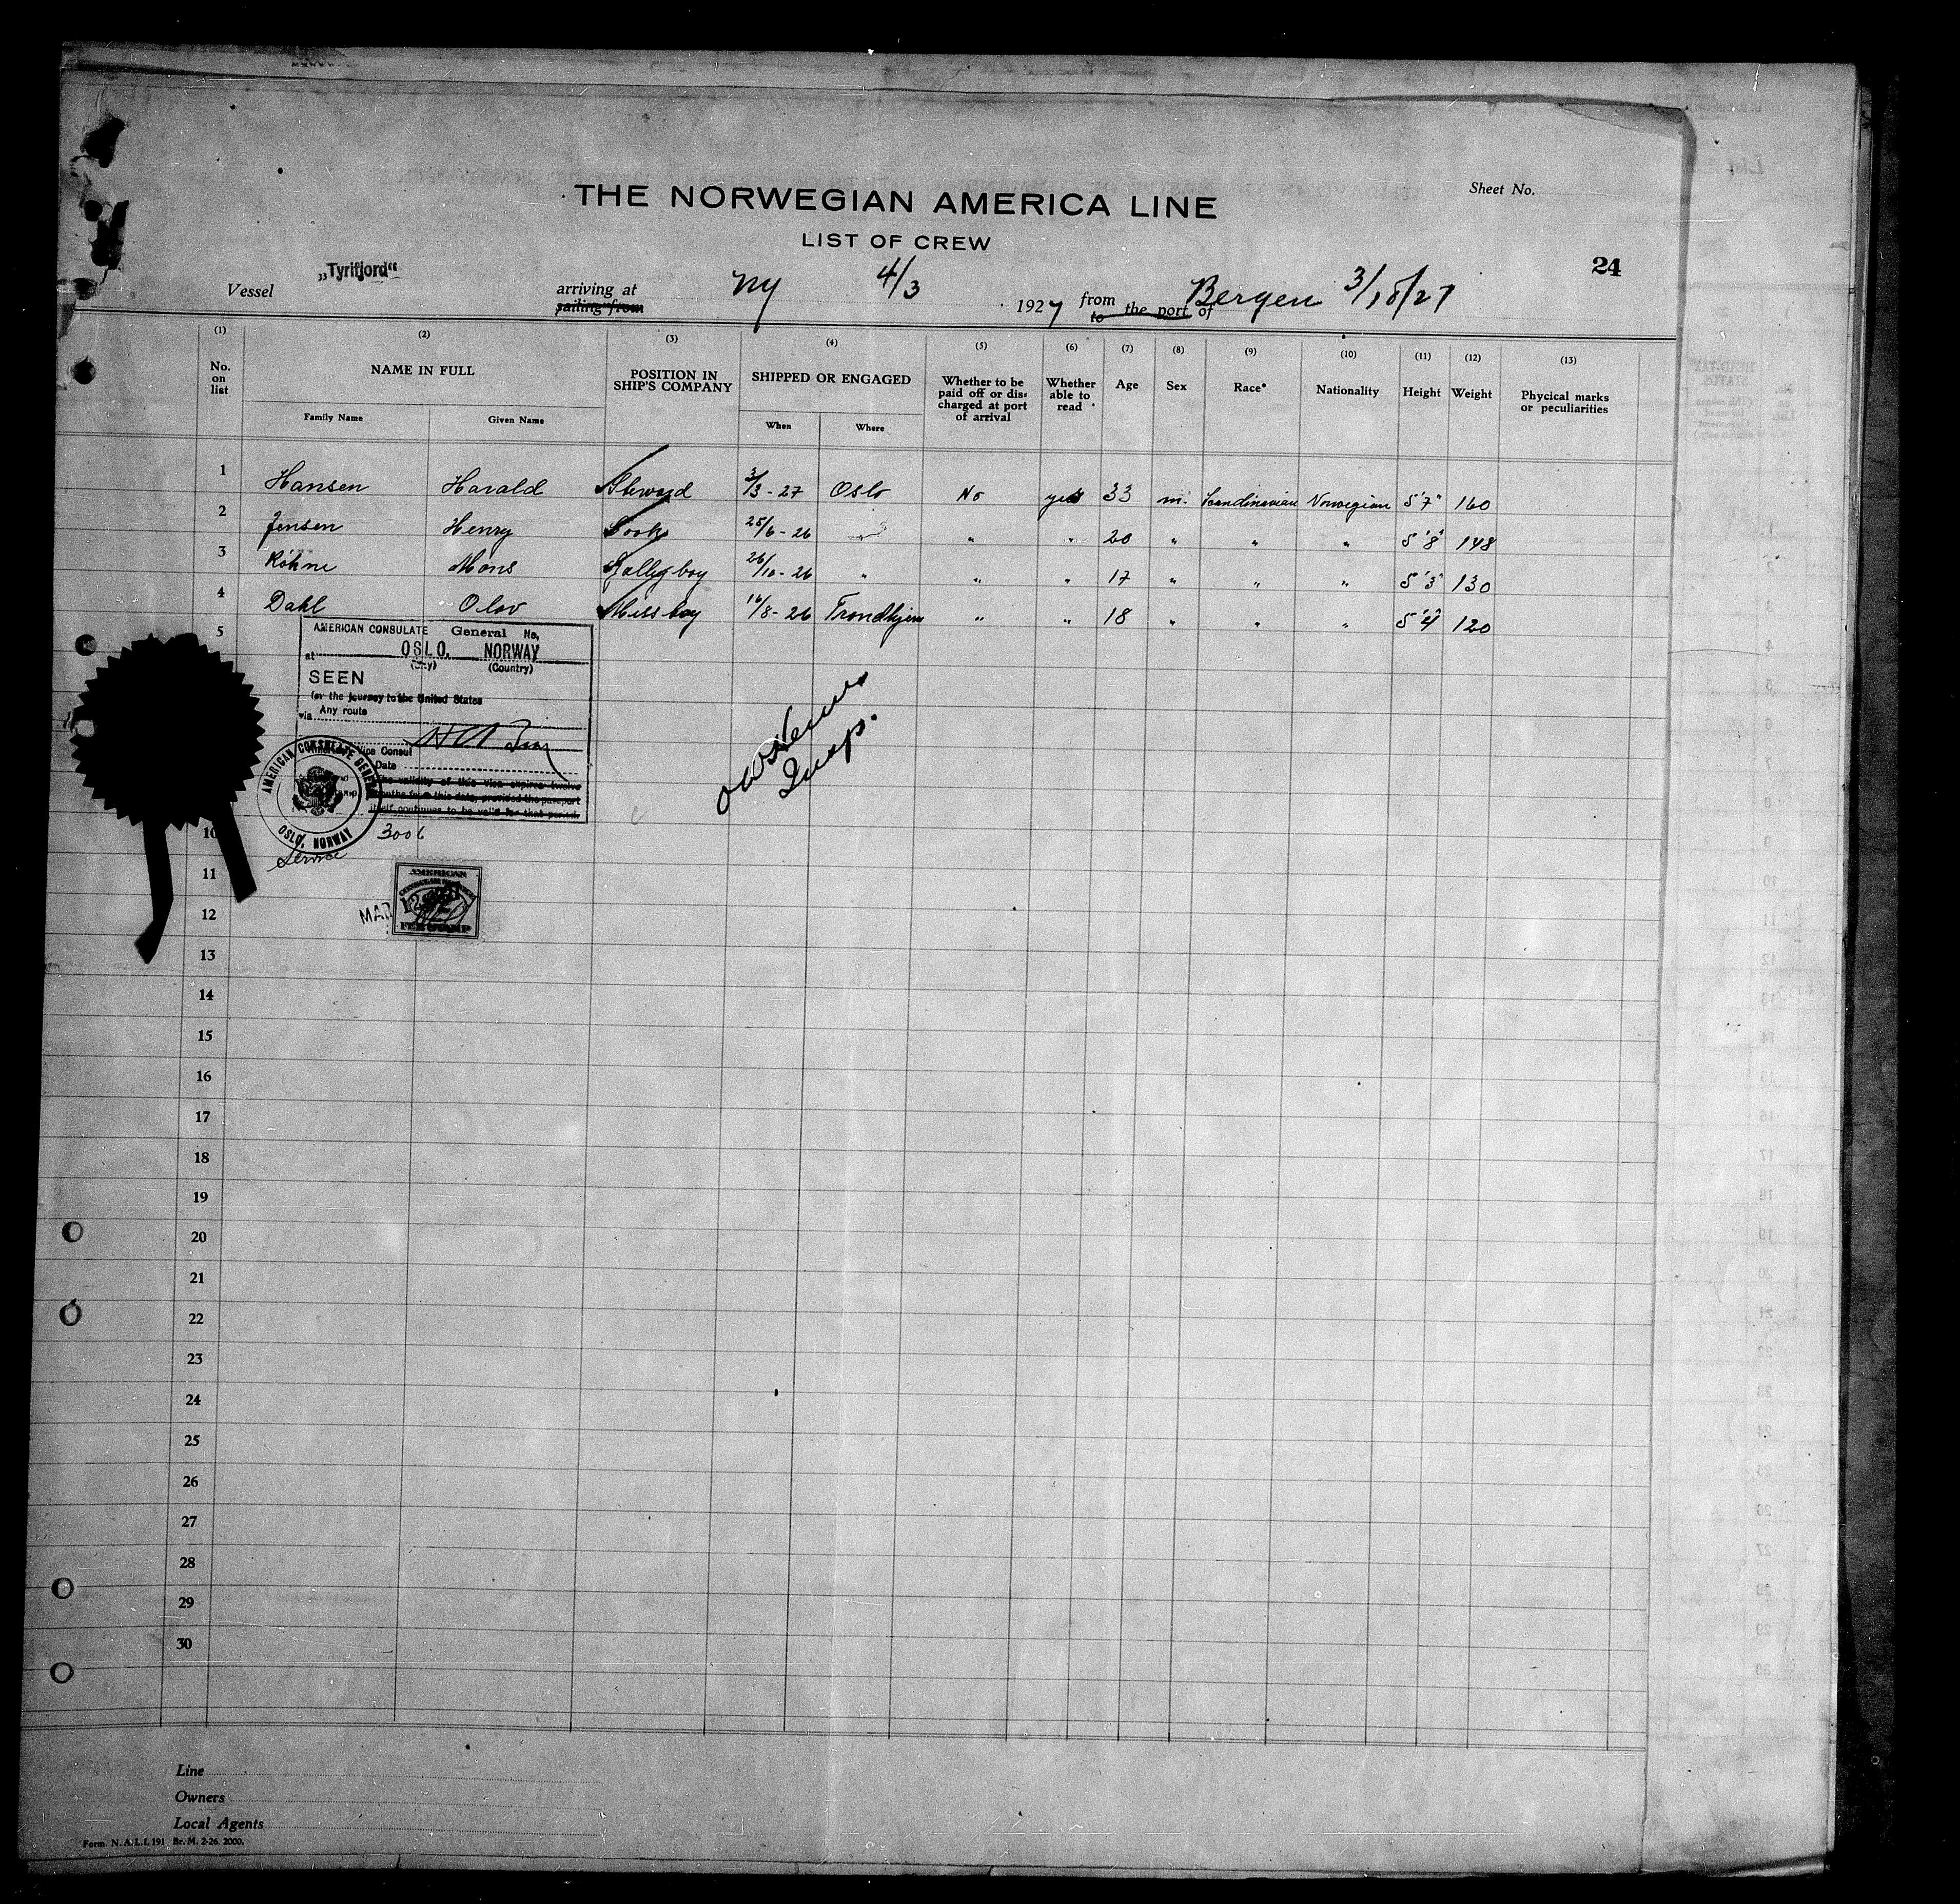 Sheet No.
THE NORWEGIAN AMERICA LINE
LIST OF CREW
24
Vessel „Tyrifjord“ arriving at sailing from NY 4/3 1927 from to the port of Bergen 3/18/27
(1) (2) (3) (4) (5) (6) (7) (8) (9) (10) (11) (12) (13)
No. on list NAME IN FULL POSITION IN SHIP'S COMPANY SHIPPED OR ENGAGED Whether to be paid off or discharged at port of arrival Whether able to read Age Sex Race* Nationality Height Weight Phycical marks or peculiarities
Family Name Given Name When Where
1 Hansen Harald Steward 3/3-27 Oslo No yes 33 m. Scandinavian Norwegian 5'7" 160
2 Jensen Henry Cook 25/6-26 " " " 20 " " " 5'8" 148
3 Röhne Mons Galleyboy 26/10-26 " " " 17 " " " 5'3" 130
4 Dahl Olov Messboy 16/8-26 Trondhjem " " 18 " " " 5'4" 120
5
AMERICAN CONSULATE General No.
at OSLO, NORWAY
(City) (Country)
SEEN
for the journey to the United States
via Any route
Vice Consul
Date
The validity of this vise expires twelve
months from this date, provided the passport
itself continues to be valid for that period.
AMERICAN CONSULATE GENERAL
OSLO, NORWAY
3006
Service
Insp.
10
11
AMERICAN
CONSULAR SERVICE
FEE STAMP
MAR
12
13
14
15
16
17
18
19
20
21
22
23
24
25
26
27
28
29
30
Line
Owners
Local Agents
Form. N.A.L.I. 191 Br. M. 2-26. 2000.